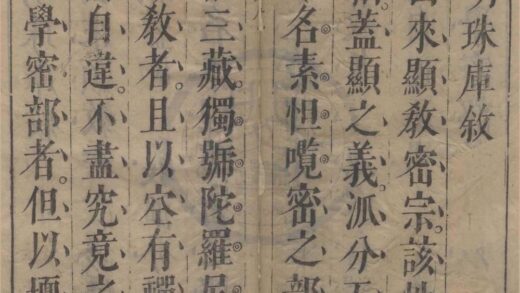 珠庫敘
來顯教密宗該
蓋顯之義派分五
名素怛囕密之部
三藏獨號陀羅尼
教者且以空有禪
自違不盡究竟之
學密部者但以壇